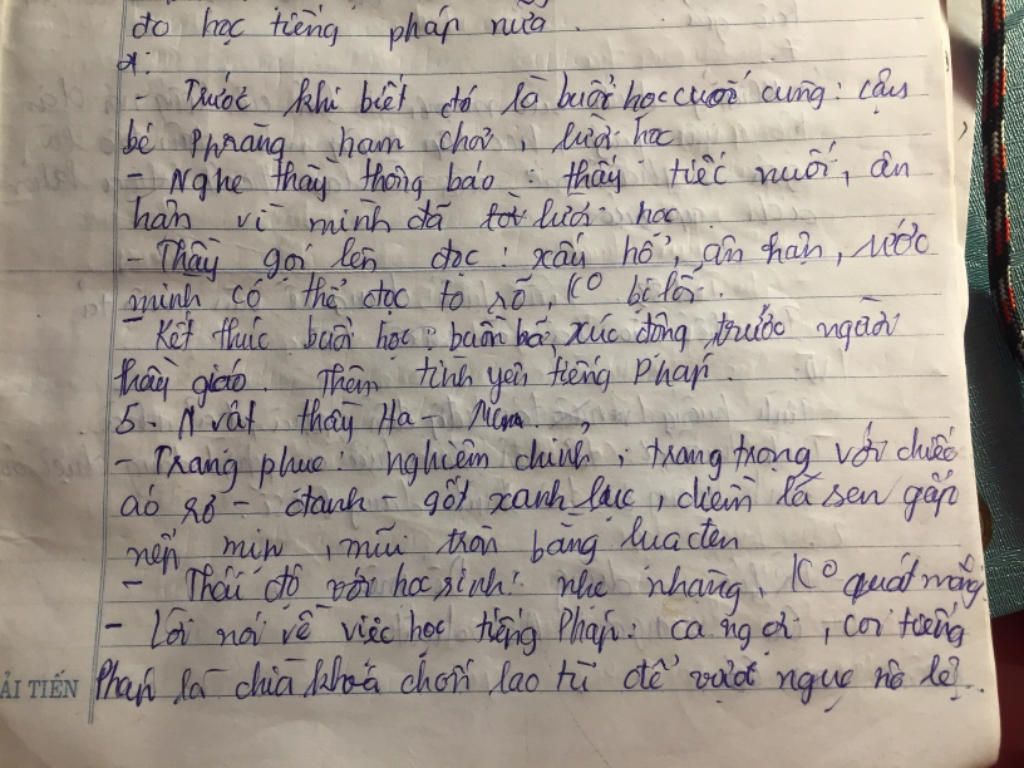 do học tiếng pháp nữa.
d:
- Trước khi biết đó là buổi học cuối cùng: cậu
bé Phrăng ham chơi, lười học
- Nghe thầy thông báo: thấy tiếc nuối, ân
hận vì mình đã lười học
- Thầy gọi lên đọc: xấu hổ, ân hận, ước
mình có thể đọc to rõ, K° bị lỗi.
- Kết thúc buổi học: buồn bã, xúc động trước người
thầy giáo. Thêm tình yêu tiếng Pháp.
5. N vật thầy Ha-Men
- Trang phục: nghiêm chỉnh, trang trọng với chiếc
áo rơ-đanh-gốt xanh lục, diềm lá sen gấp
nếp mịn, mũ tròn bằng lụa đen
- Thái độ với học sinh: nhẹ nhàng, K° quát mắng
- Lời nói về việc học tiếng Pháp: ca ngợi, coi tiếng
ẢI TIẾN
Pháp là chìa khoá chốn lao tù để vượt ngục nô lệ.